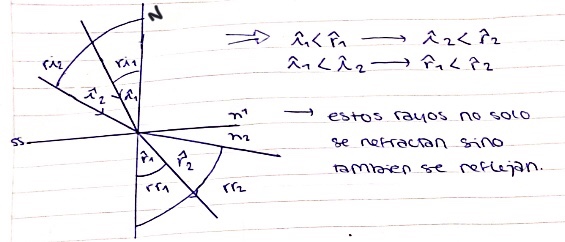 N
ri2
ri1
î2
î1
n1
n2
ss
r̂1
r̂2
rr1
rr2
⇒ î1 < r̂1 → î2 < r̂2
î1 < î2 → r̂1 < r̂2
→ estos rayos no solo
se refractan sino
tambien se reflejan.